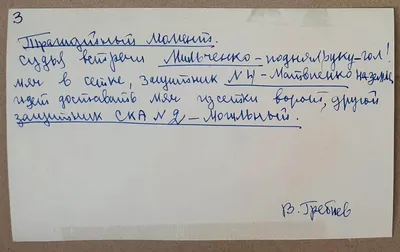 3
Трагидтный момент.
Судья встречи Мильченко – поднял руку – гол!
мяч в сетке, защитник №4 – Матвиенко на заднем
идет доставать мяч из сетки ворот, другой
защитник СКА №2 – Могильный.
В. Гребнев